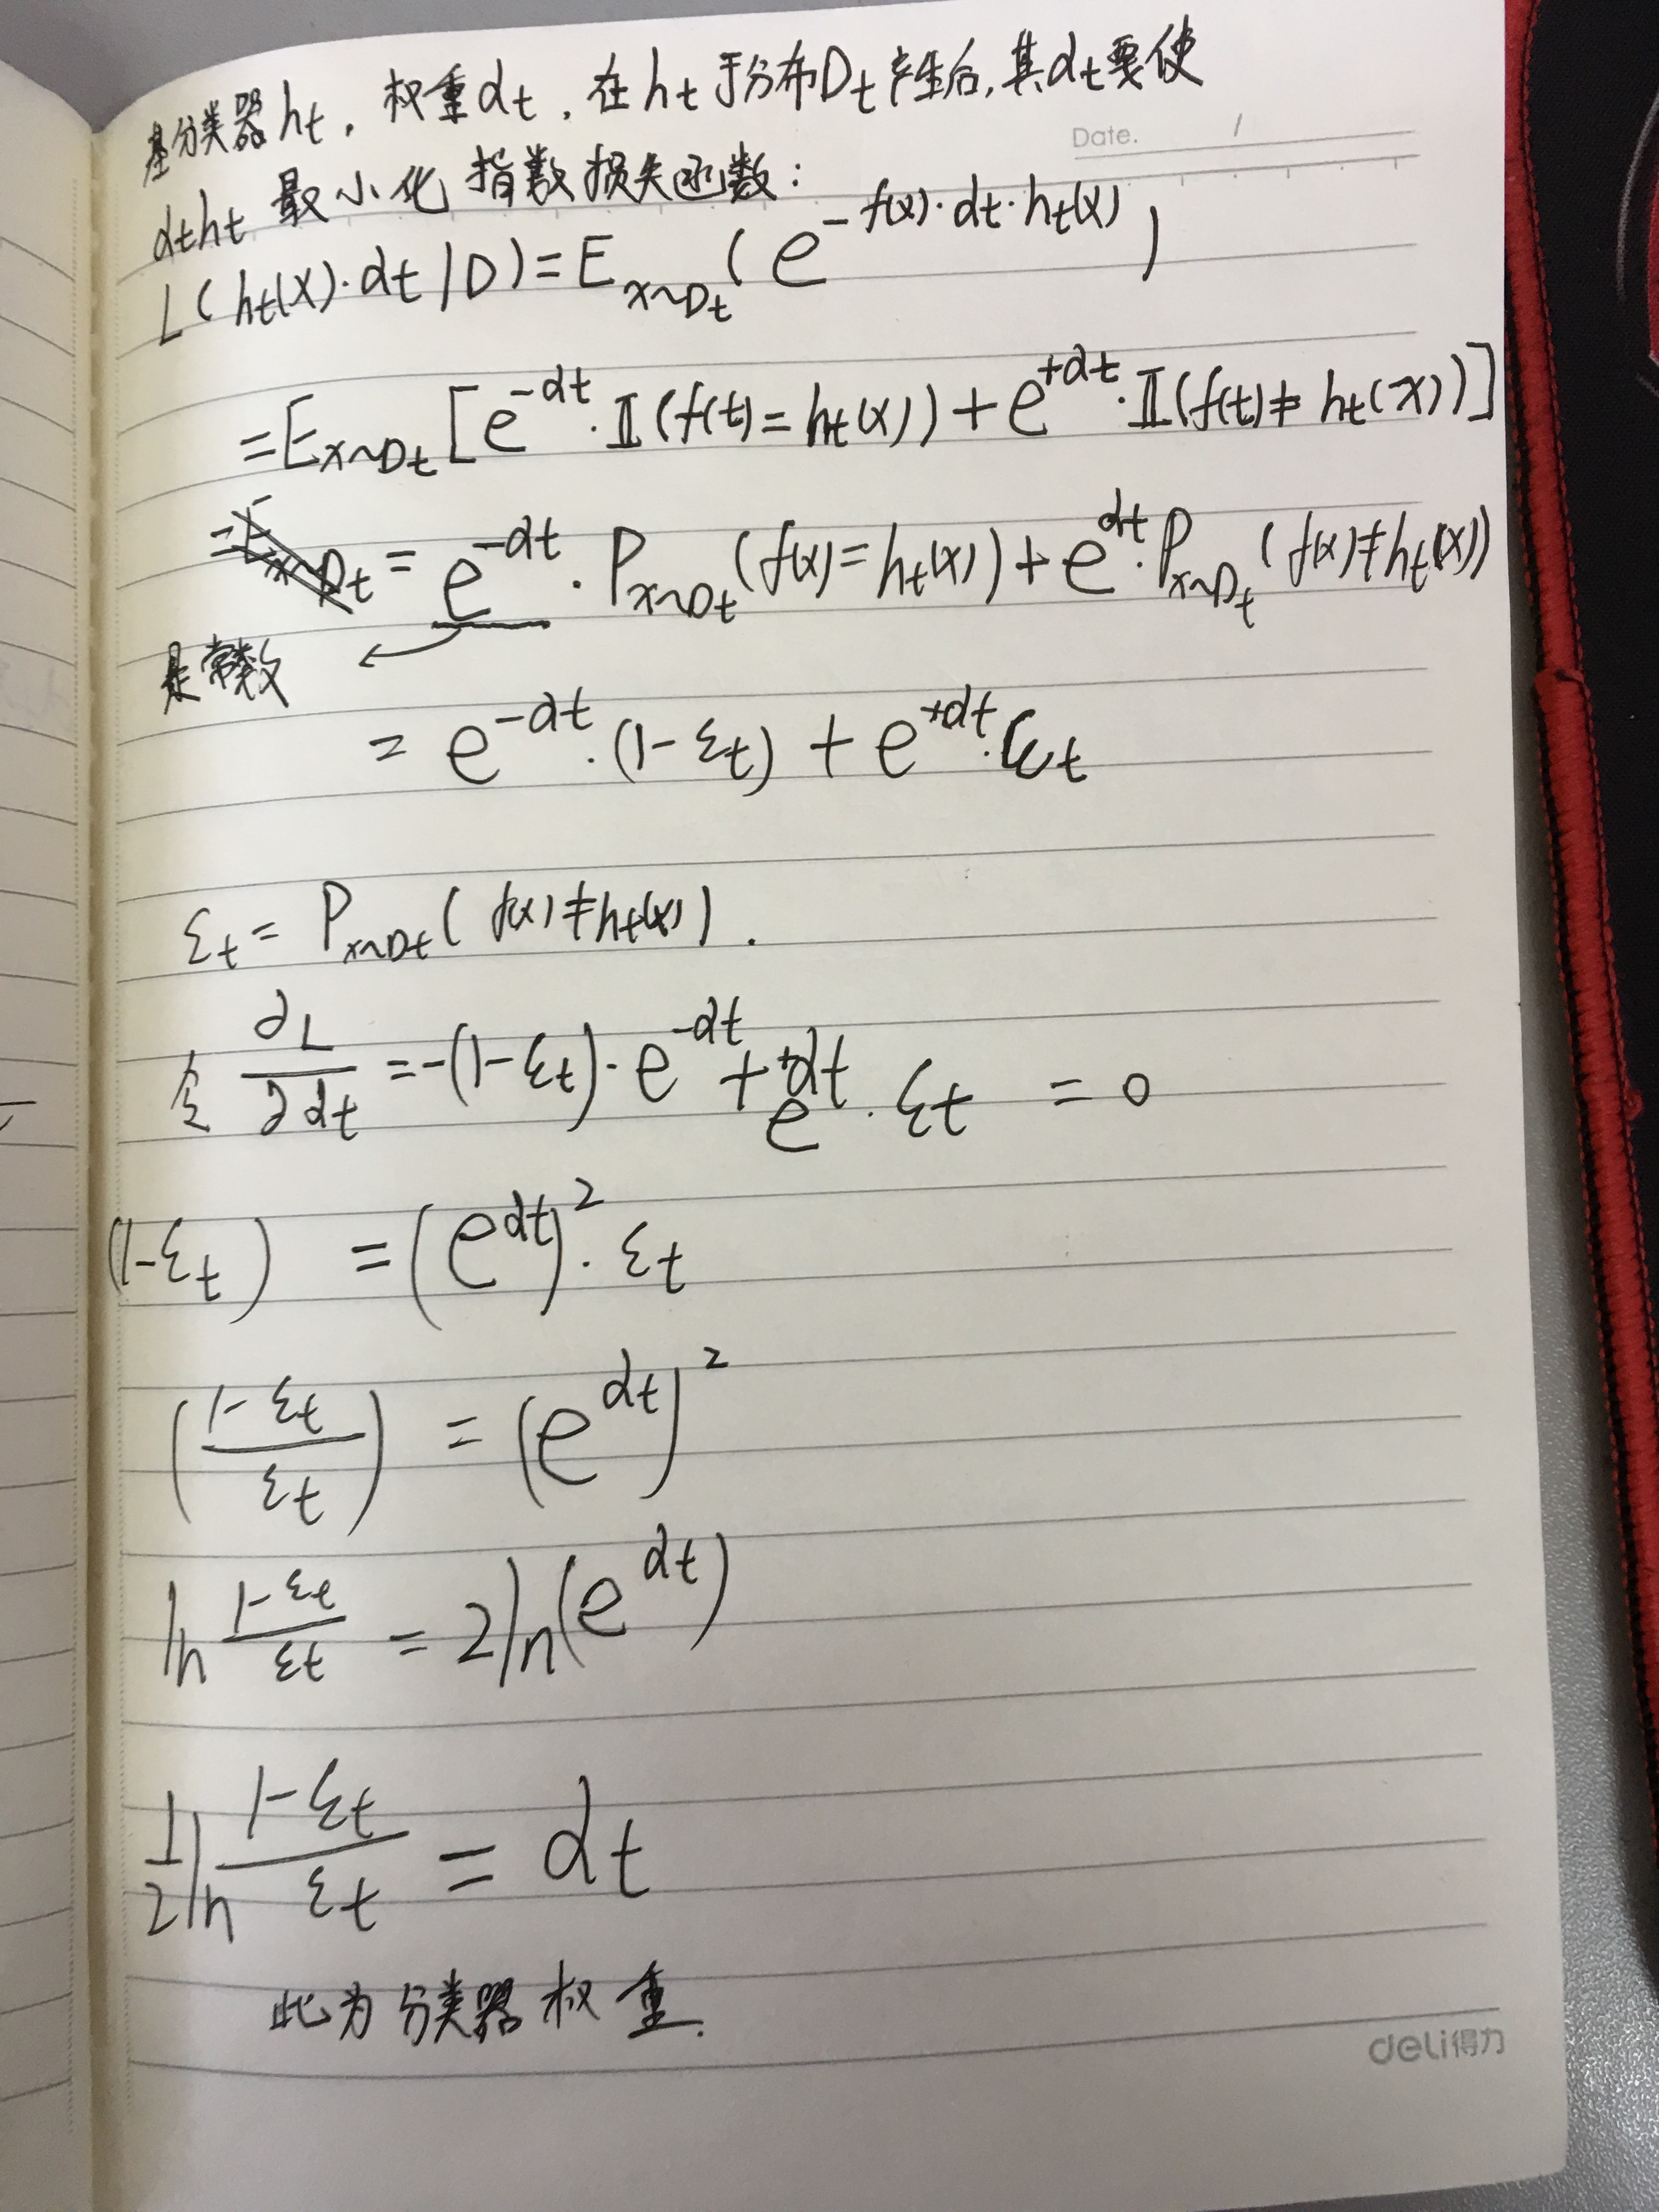 基分类器hₜ, 权重αₜ, 在hₜ于分布Dₜ产生后,其αₜ要使
Date. /
αₜhₜ 最小化 指数损失函数:
L(hₜ(x)·αₜ|D)=E_{x~Dₜ}(e^{-f(x)·αₜ·hₜ(x)})
=E_{x~Dₜ}[e^{-αₜ}·𝕀(f(t)=hₜ(x))+e^{+αₜ}·𝕀(f(t)≠hₜ(x))]
= e^{-αₜ}·P_{x~Dₜ}(f(x)=hₜ(x))+e^{αₜ}·P_{x~Dₜ}(f(x)≠hₜ(x))
是常数
= e^{-αₜ}·(1-εₜ)+e^{+αₜ}·εₜ
εₜ=P_{x~Dₜ}(f(x)≠hₜ(x)).
令 ∂L/∂αₜ=-(1-εₜ)·e^{-αₜ}+e^{+αₜ}·εₜ=0
(1-εₜ)=(e^{αₜ})²·εₜ
((1-εₜ)/εₜ)=(e^{αₜ})²
ln (1-εₜ)/εₜ=2ln(e^{αₜ})
1/2 ln (1-εₜ)/εₜ=αₜ
此为分类器权重.
deli得力